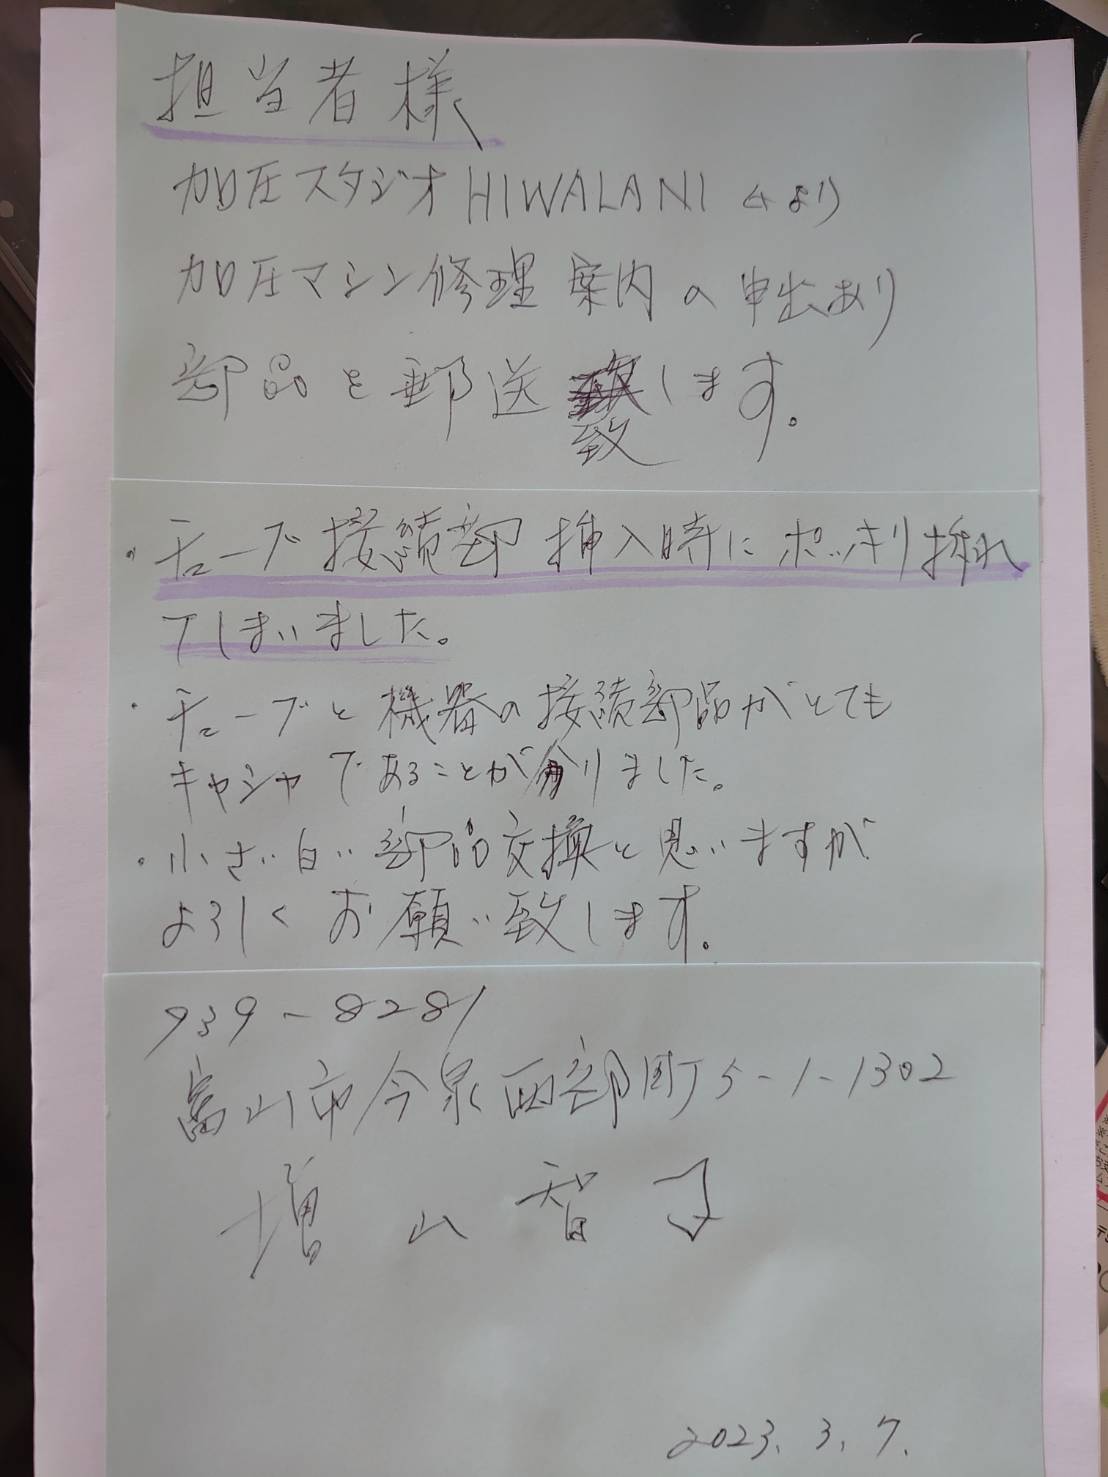 担当者様
加圧スタジオHIWALANI より
加圧マシン修理案内の申出あり
部品を郵送致します。
・チューブ接続部挿入時にポッキリ折れ
てしまいました。
・チューブと機器の接続部品がとても
キャシャであることが分りました。
・小さい白い部品交換と思いますが
よろしくお願い致します。
939-8281
富山市今泉西部町5-1-1302
増山智子
2023.3.7.